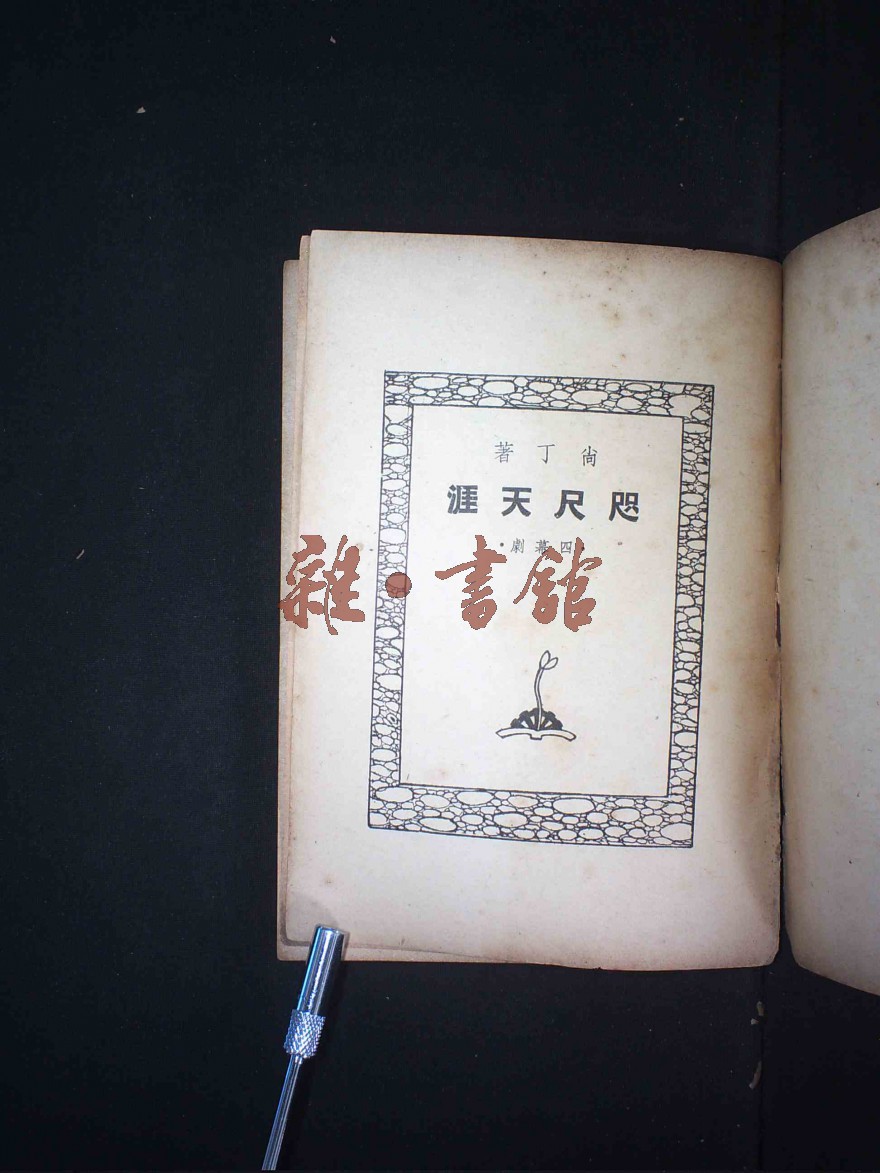 尙丁著
咫尺天涯
四幕劇·
雜·書館